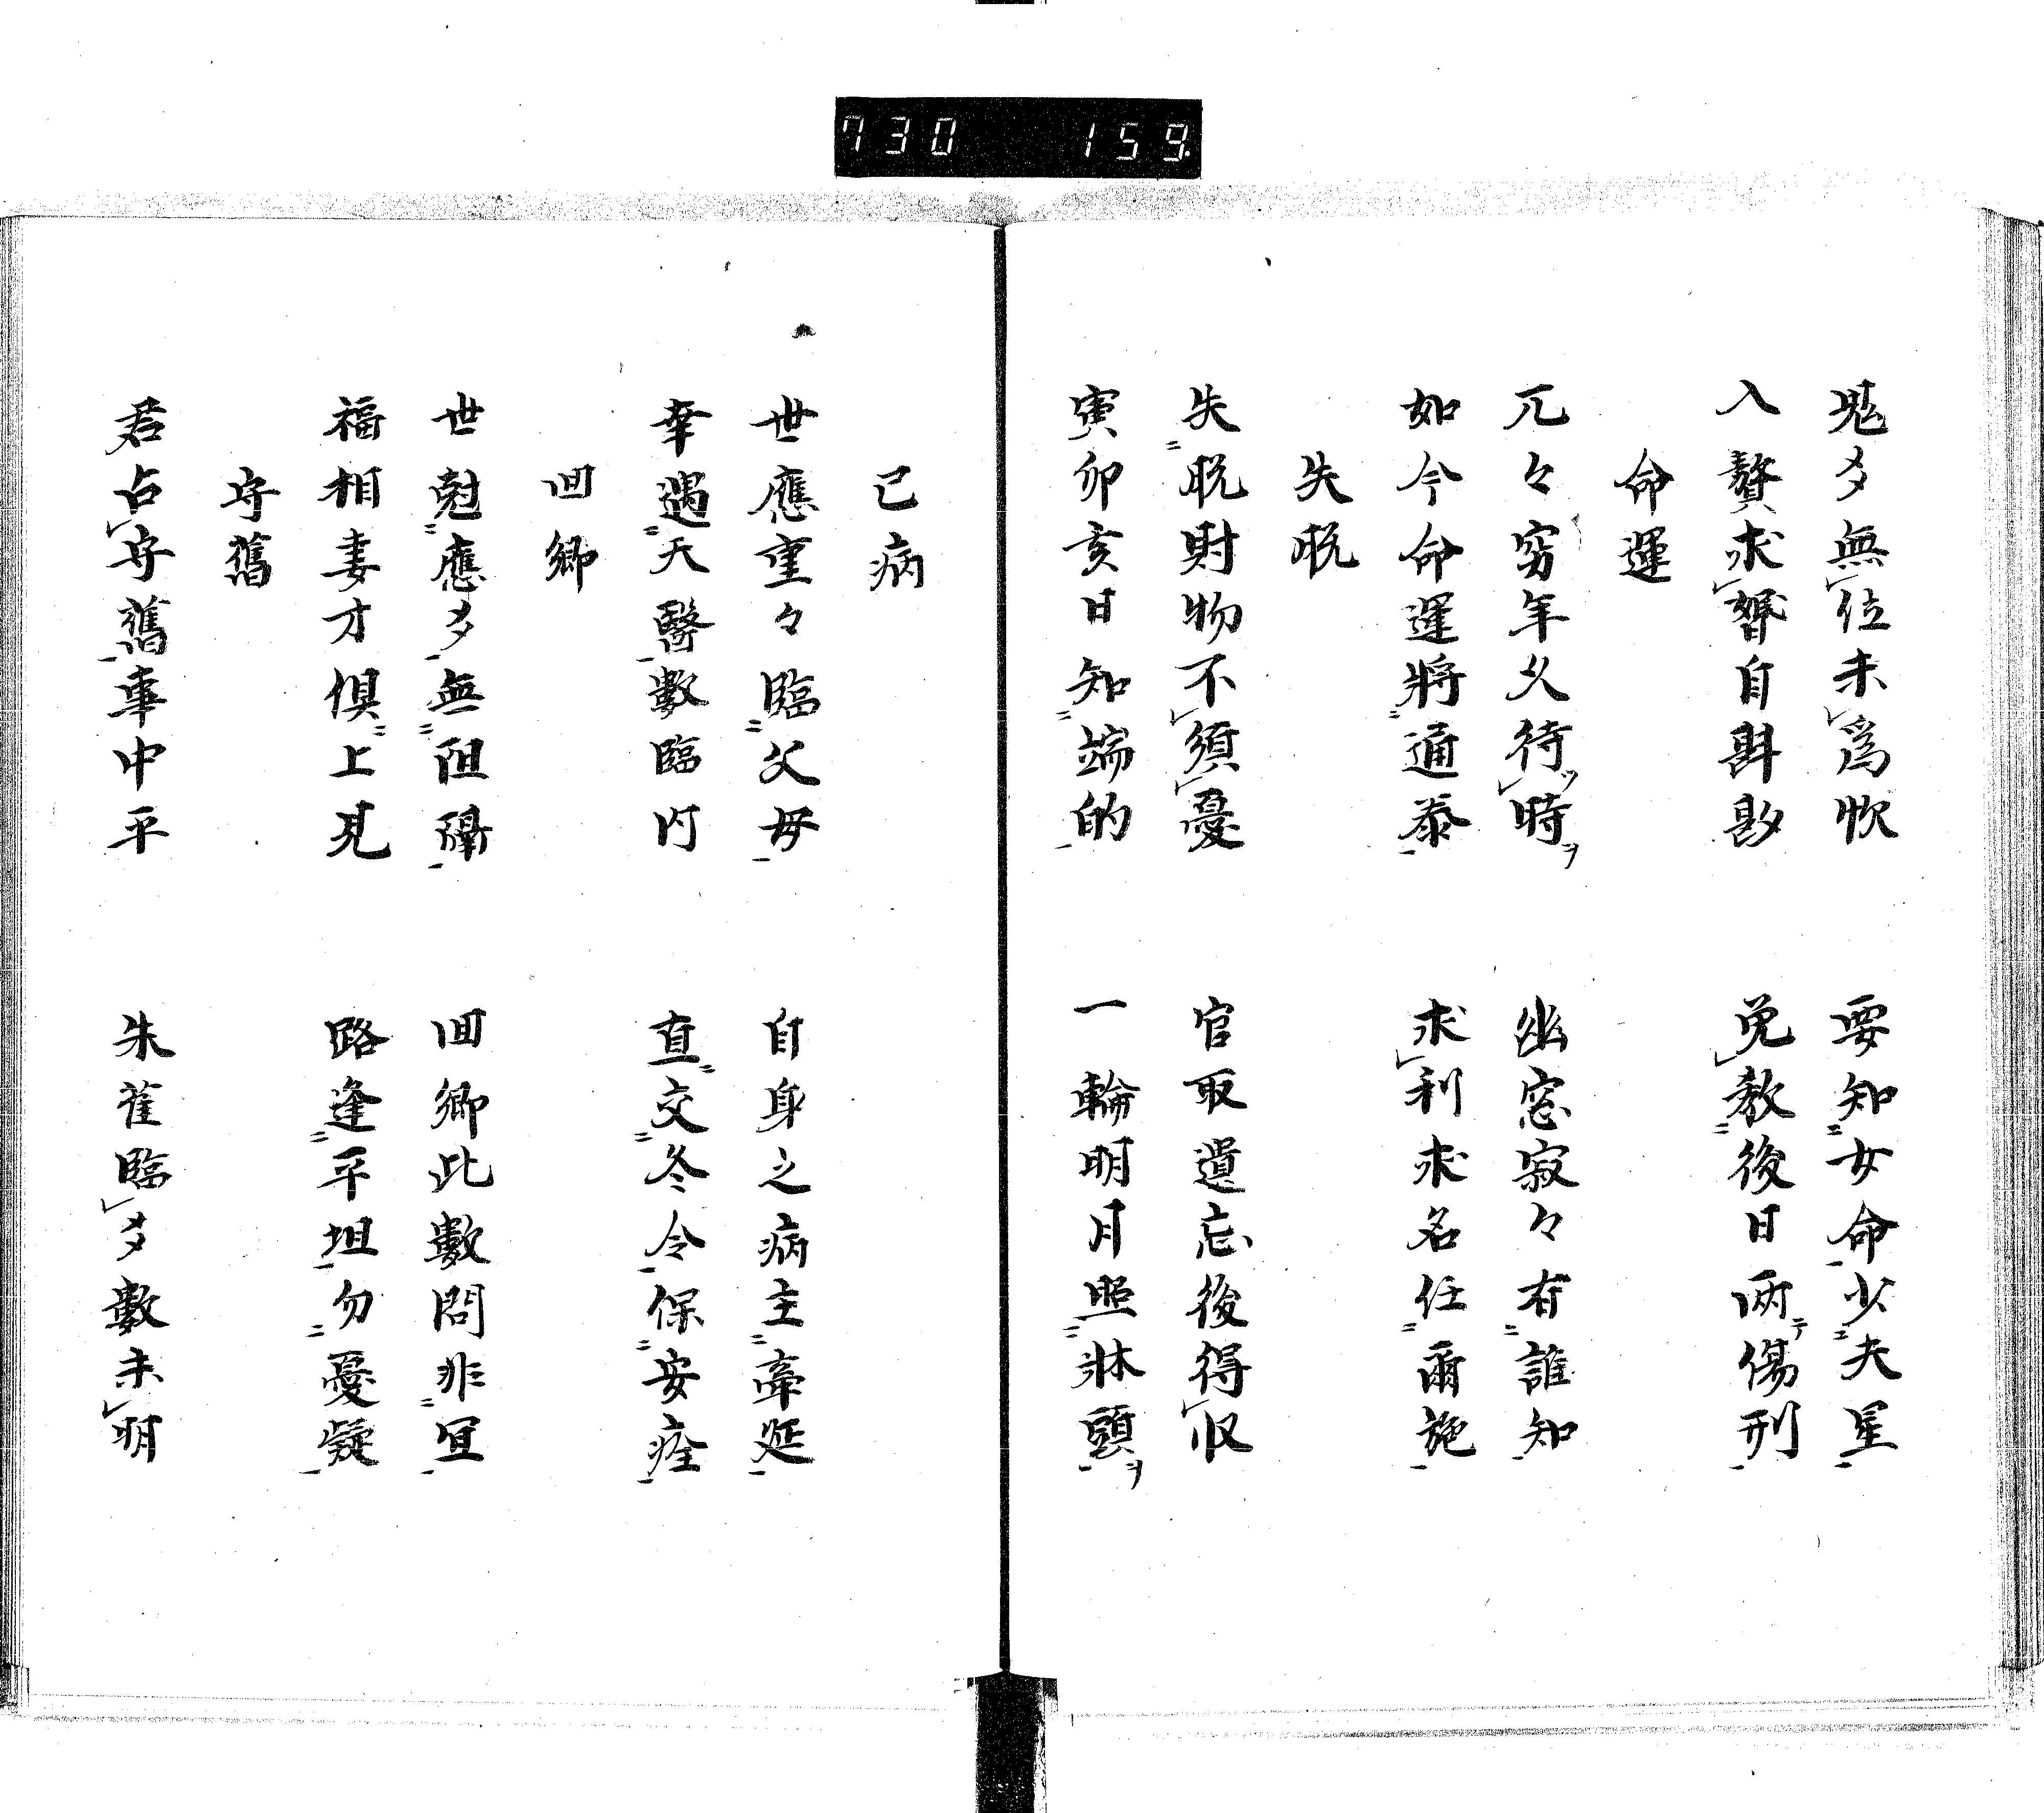 730 159
鬼爻無位未爲忻 要知女命少夫星
入贅求聟自斟酌 免教後日兩傷刑
命運
兀々窮年久待時 幽窓寂々有誰知
如今命運將通泰 求利求名任爾施
失脱
失脱財物不須憂 官取遺忘後得収
寅卯亥日知端的 一輪明月照牀頭
己病
世應重々臨父母 自身之病主牽延
幸遇天醫數臨内 直交冬令保安痊
回郷
世尅應爻無阻碍 回郷此數問非宜
福相妻才倶上見 路逢平坦勿憂疑
守舊
君占守舊事中平 朱雀臨爻數未明